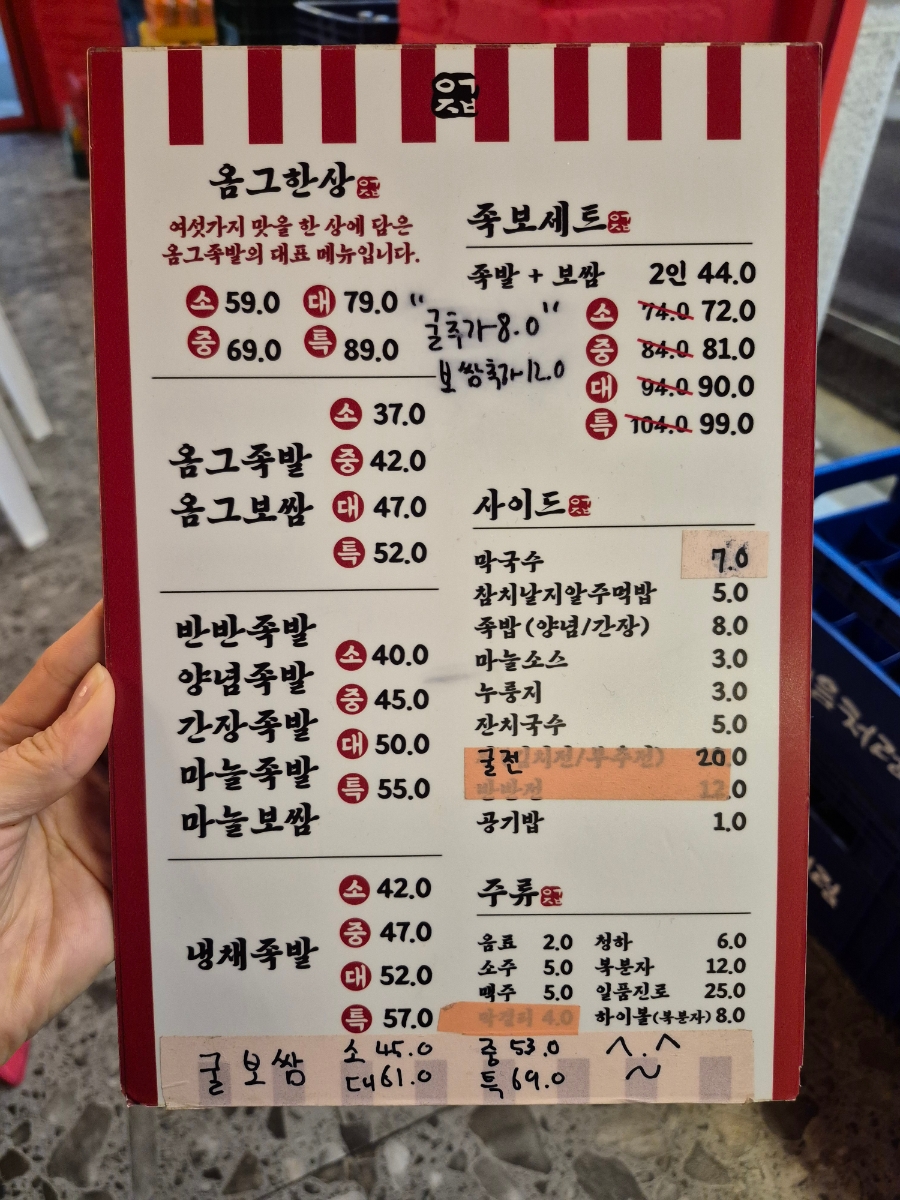 옴그한상
여섯가지 맛을 한 상에 담은
옴그족발의 대표 메뉴입니다.
소 59.0 대 79.0
중 69.0 특 89.0
"굴추가 8.0"
보쌈추가 12.0
옴그족발
옴그보쌈
소 37.0
중 42.0
대 47.0
특 52.0
반반족발
양념족발
간장족발
마늘족발
마늘보쌈
소 40.0
중 45.0
대 50.0
특 55.0
냉채족발
소 42.0
중 47.0
대 52.0
특 57.0
족보세트
족발 + 보쌈 2인 44.0
소 74.0 72.0
중 84.0 81.0
대 94.0 90.0
특 104.0 99.0
사이드
막국수 7.0
참치날치알주먹밥 5.0
족밥(양념/간장) 8.0
마늘소스 3.0
누룽지 3.0
잔치국수 5.0
굴전 20.0
반반전 12.0
공기밥 1.0
주류
음료 2.0 청하 6.0
소주 5.0 복분자 12.0
맥주 5.0 일품진로 25.0
막걸리 4.0 하이볼(복분자) 8.0
굴보쌈 소 45.0 중 53.0 ^.^
대 61.0 특 69.0 ~